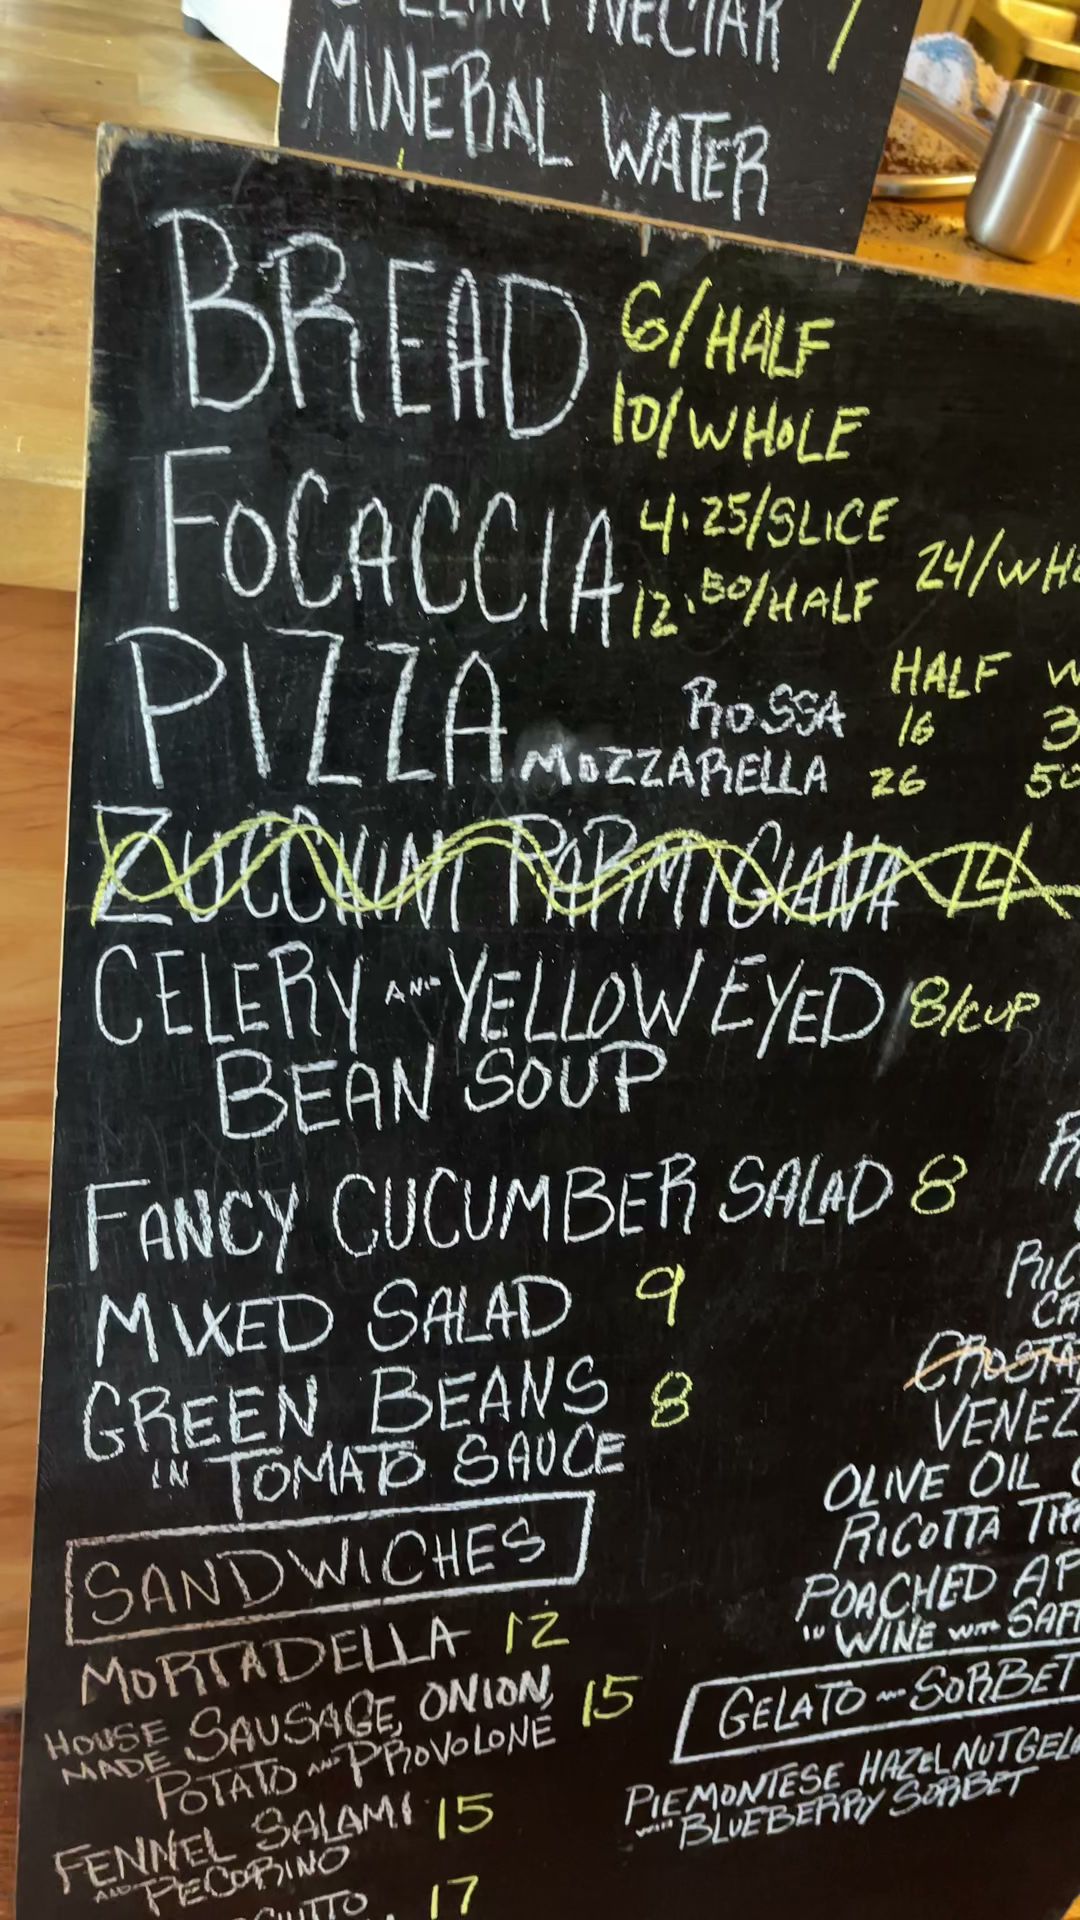 NECTAR 7
MINERAL WATER
BREAD 6/HALF
10/WHOLE
FOCACCIA 4.25/SLICE
12.50/HALF 24/WHO
PIZZA HALF W
ROSSA 16 3
MOZZARELLA 26 50
ZUCCHINI PARMIGIANA 14
CELERY AND YELLOW EYED 8/CUP
BEAN SOUP
FANCY CUCUMBER SALAD 8
MIXED SALAD 9
GREEN BEANS 8
IN TOMATO SAUCE
SANDWICHES
MORTADELLA 12
HOUSE MADE SAUSAGE, ONION, 15
POTATO AND PROVOLONE
FENNEL SALAMI 15
AND PECORINO
17
RIC
CROSTA
VENEZ
OLIVE OIL
RICOTTA
POACHED AP
IN WINE WITH SAFF
GELATO AND SORBET
PIEMONTESE HAZELNUT GEL
WITH BLUEBERRY SORBET